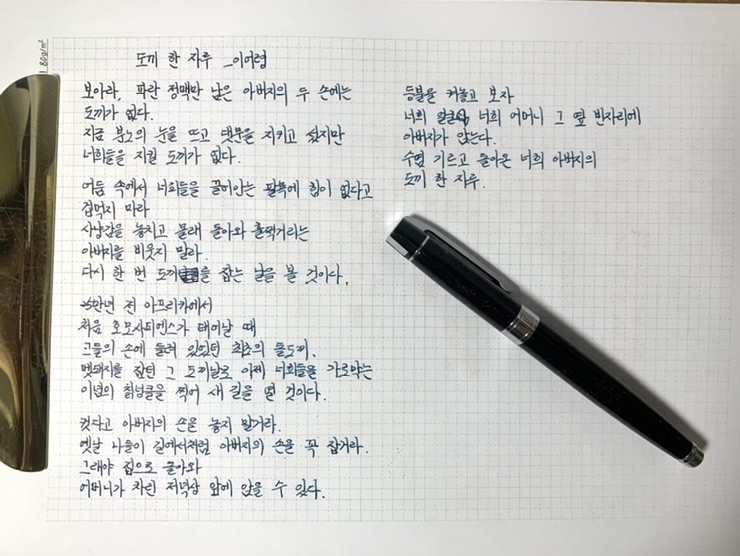 80g/m²
도끼 한 자루 _이어령
보아라, 파란 정맥만 남은 아버지의 두 손에는
도끼가 없다.
지금 분노의 눈을 뜨고 대문을 지키고 섰지만
너희들을 지킬 도끼가 없다.
어둠 속에서 너희들을 끌어안는 팔뚝에 힘이 없다고
겁먹지 마라
사냥감을 놓치고 몰래 돌아와 훌쩍거리는
아버지를 비웃지 말라.
다시 한 번 도끼를 잡는 날을 볼 것이다.
5만년 전 아프리카에서
처음 호모사피엔스가 태어날 때
그들의 손에 들려 있었던 최초의 돌도끼.
멧돼지를 잡던 그 도끼날로 이제 너희들을 가로막는
이념의 칡넝쿨을 찍어 새 길을 열 것이다.
컸다고 아버지의 손을 놓지 말거라.
옛날 나들이 길에서처럼 아버지의 손을 꼭 잡거라.
그래야 집으로 돌아와
어머니가 차린 저녁상 앞에 앉을 수 있다.
등불을 켜놓고 보자
너희 얼굴 너희 어머니 그 옆 빈자리에
아버지가 앉는다.
수염 기르고 돌아온 너희 아버지의
도끼 한 자루.